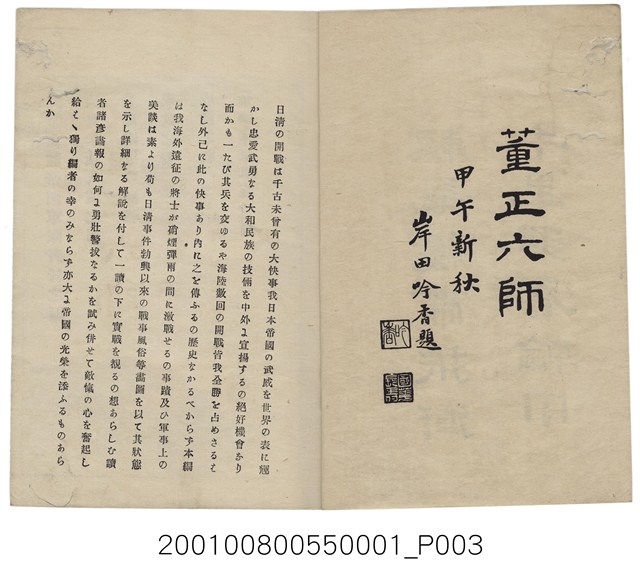 董正六師
甲午新秋
岸田吟香題
吟香
日清の開戰は千古未曾有の大快事我日本帝國の武威を世界の表に輝
かし忠愛武勇なる大和民族の技倆を中外に宣揚するの絶好機會なり
而かも一たび其兵を交ゆるや海陸數回の開戰皆我全勝を占めさるは
なし外已に此の快事あり内に之を傳ふるの歷史なかるべからず本編
は我海外遠征の將士が硝煙彈雨の間に激戰せるの事蹟及ひ軍事上の
美談は素より苟も日清事件勃興以來の戰事風俗等畵圖を以て其狀態
を示し詳細なる解說を付して一讀の下に實戰を觀るの想あらしむ讀
者諸彦畵報の如何に勇壯警拔なるかを試み併せて敵愾の心を奮起し
給はヽ獨り編者の幸のみならず亦大に帝國の光榮を添ふるものあら
んか
200100800550001_P003